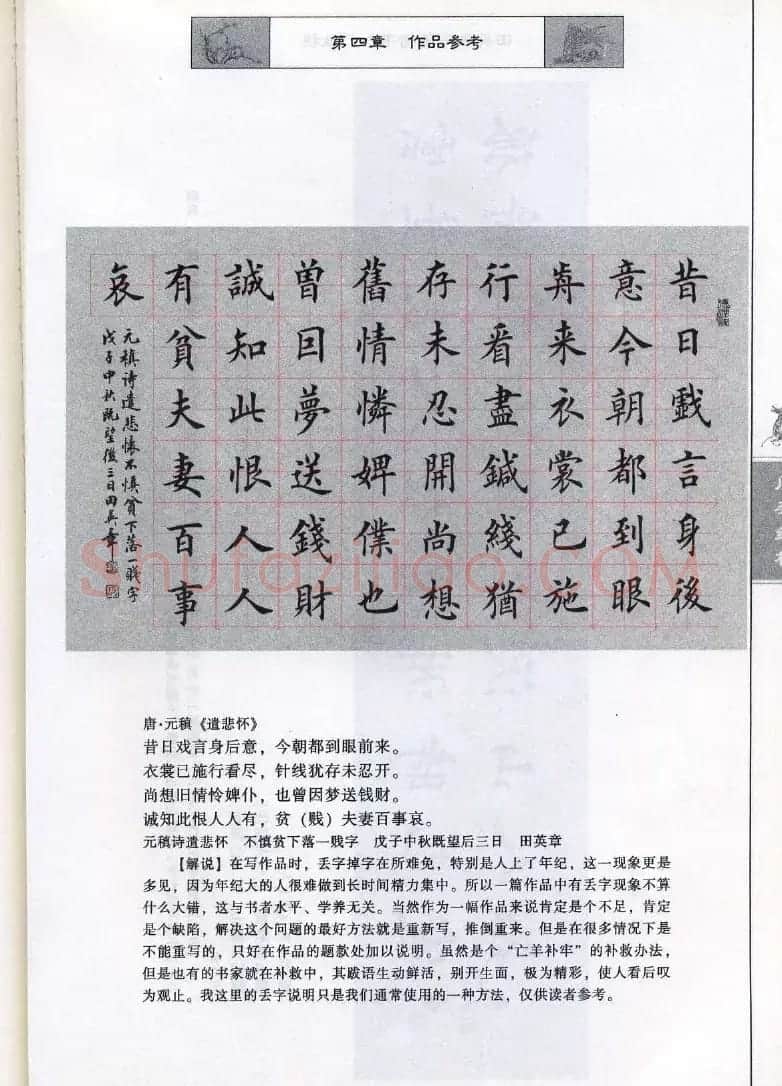 第四章　作品参考
昔日戱言身後
意今朝都到眼
歬来衣裳已施
行看盡鍼綫猶
存未忍開尚想
舊情憐婢僕也
曽囙夢送錢財
誠知此恨人人
有貧夫妻百事
哀
元稹诗遣悲懐不慎貧下落一贱字
戊子中秋既望後三日田英章
Shufaziliao.COM
唐·元稹《遣悲怀》
昔日戏言身后意，今朝都到眼前来。
衣裳已施行看尽，针线犹存未忍开。
尚想旧情怜婢仆，也曾因梦送钱财。
诚知此恨人人有，贫（贱）夫妻百事哀。
元稹诗遣悲怀　不慎贫下落一贱字　戊子中秋既望后三日　田英章
【解说】在写作品时，丢字掉字在所难免，特别是人上了年纪，这一现象更是
多见，因为年纪大的人很难做到长时间精力集中。所以一篇作品中有丢字现象不算
什么大错，这与书者水平、学养无关。当然作为一幅作品来说肯定是个不足，肯定
是个缺陷，解决这个问题的最好方法就是重新写，推倒重来。但是在很多情况下是
不能重写的，只好在作品的题款处加以说明。虽然是个“亡羊补牢”的补救办法，
但是也有的书家就在补救中，其跋语生动鲜活，别开生面，极为精彩，使人看后叹
为观止。我这里的丢字说明只是我们通常使用的一种方法，仅供读者参考。